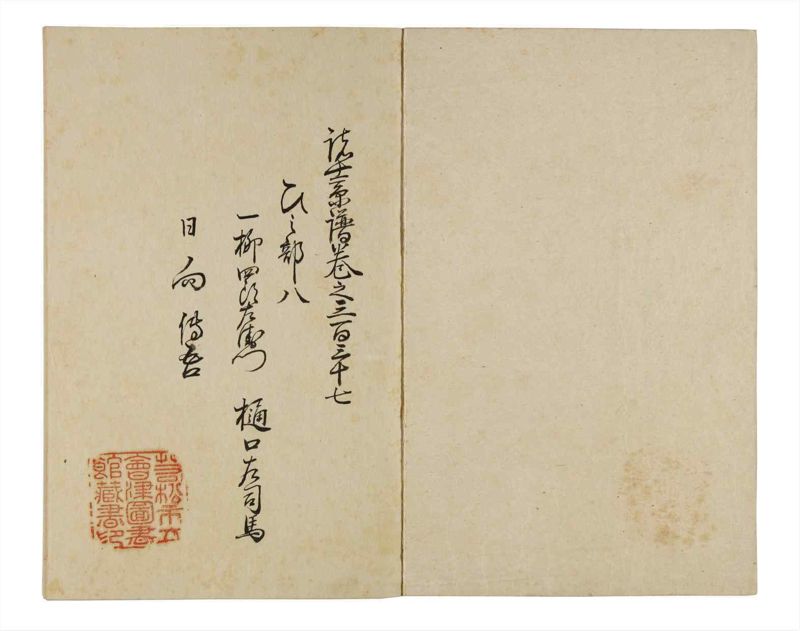 諸士系譜巻之三百三十七
ひ之部八
一柳四郎左衛門 樋口左司馬
日向傳吾
若松市立
會津圖書
館藏書印